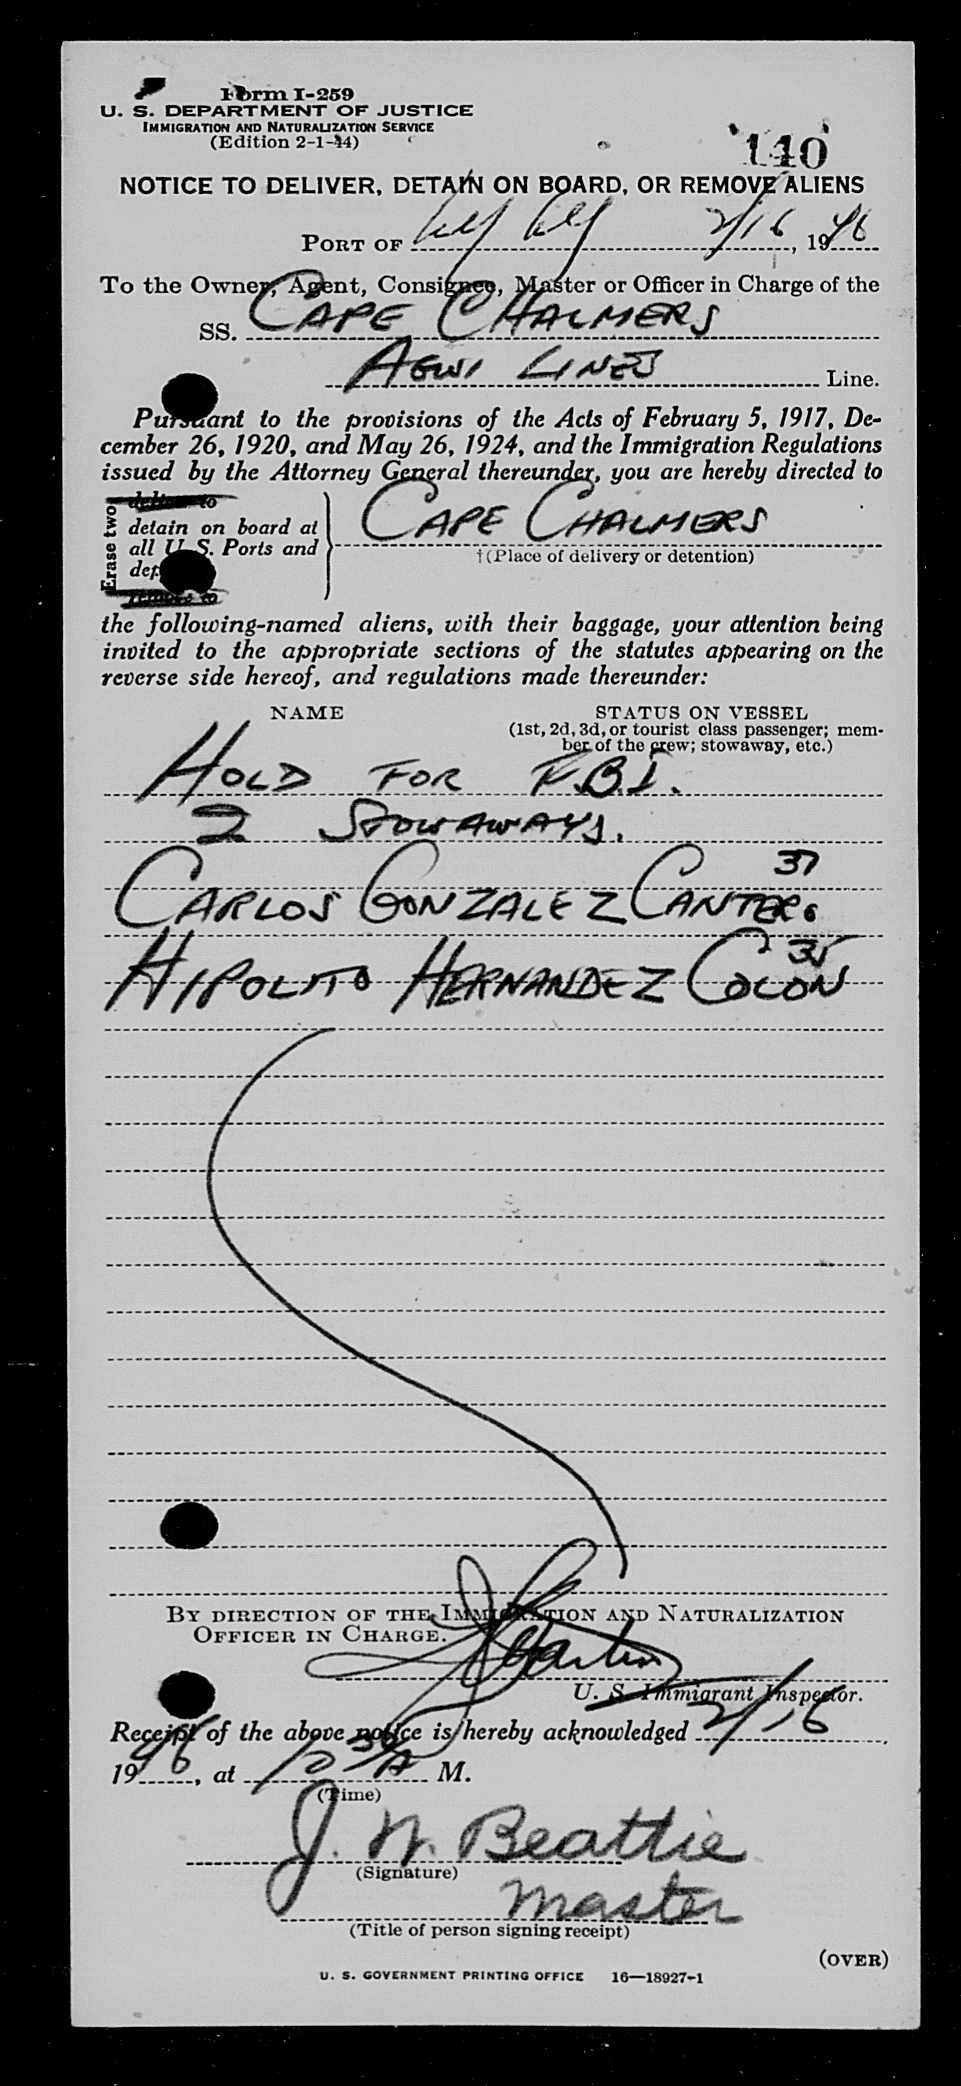 Form I-259
U. S. DEPARTMENT OF JUSTICE
IMMIGRATION AND NATURALIZATION SERVICE
(Edition 2-1-44)
140
NOTICE TO DELIVER, DETAIN ON BOARD, OR REMOVE ALIENS
PORT OF 2/16, 1946
To the Owner, Agent, Consignee, Master or Officer in Charge of the
SS. CAPE CHALMERS
AGWI LINES Line.
Pursuant to the provisions of the Acts of February 5, 1917, De-
cember 26, 1920, and May 26, 1924, and the Immigration Regulations
issued by the Attorney General thereunder, you are hereby directed to
Erase two
deliver to
detain on board at
all U. S. Ports and
dep
remove to
CAPE CHALMERS
†(Place of delivery or detention)
the following-named aliens, with their baggage, your attention being
invited to the appropriate sections of the statutes appearing on the
reverse side hereof, and regulations made thereunder:
NAME STATUS ON VESSEL
(1st, 2d, 3d, or tourist class passenger; mem-
ber of the crew; stowaway, etc.)
HOLD FOR F.B.I.
2 STOWAWAYS.
CARLOS GONZALEZ CANTERO 37
HIPOLITO HERNANDEZ COLON 35
BY DIRECTION OF THE IMMIGRATION AND NATURALIZATION
OFFICER IN CHARGE.
U. S. Immigrant Inspector.
Receipt of the above notice is hereby acknowledged 2/16,
1946, at 10 30 A M.
(Time)
J. W. Beattie
(Signature)
Master
(Title of person signing receipt)
(OVER)
U. S. GOVERNMENT PRINTING OFFICE 16—18927-1